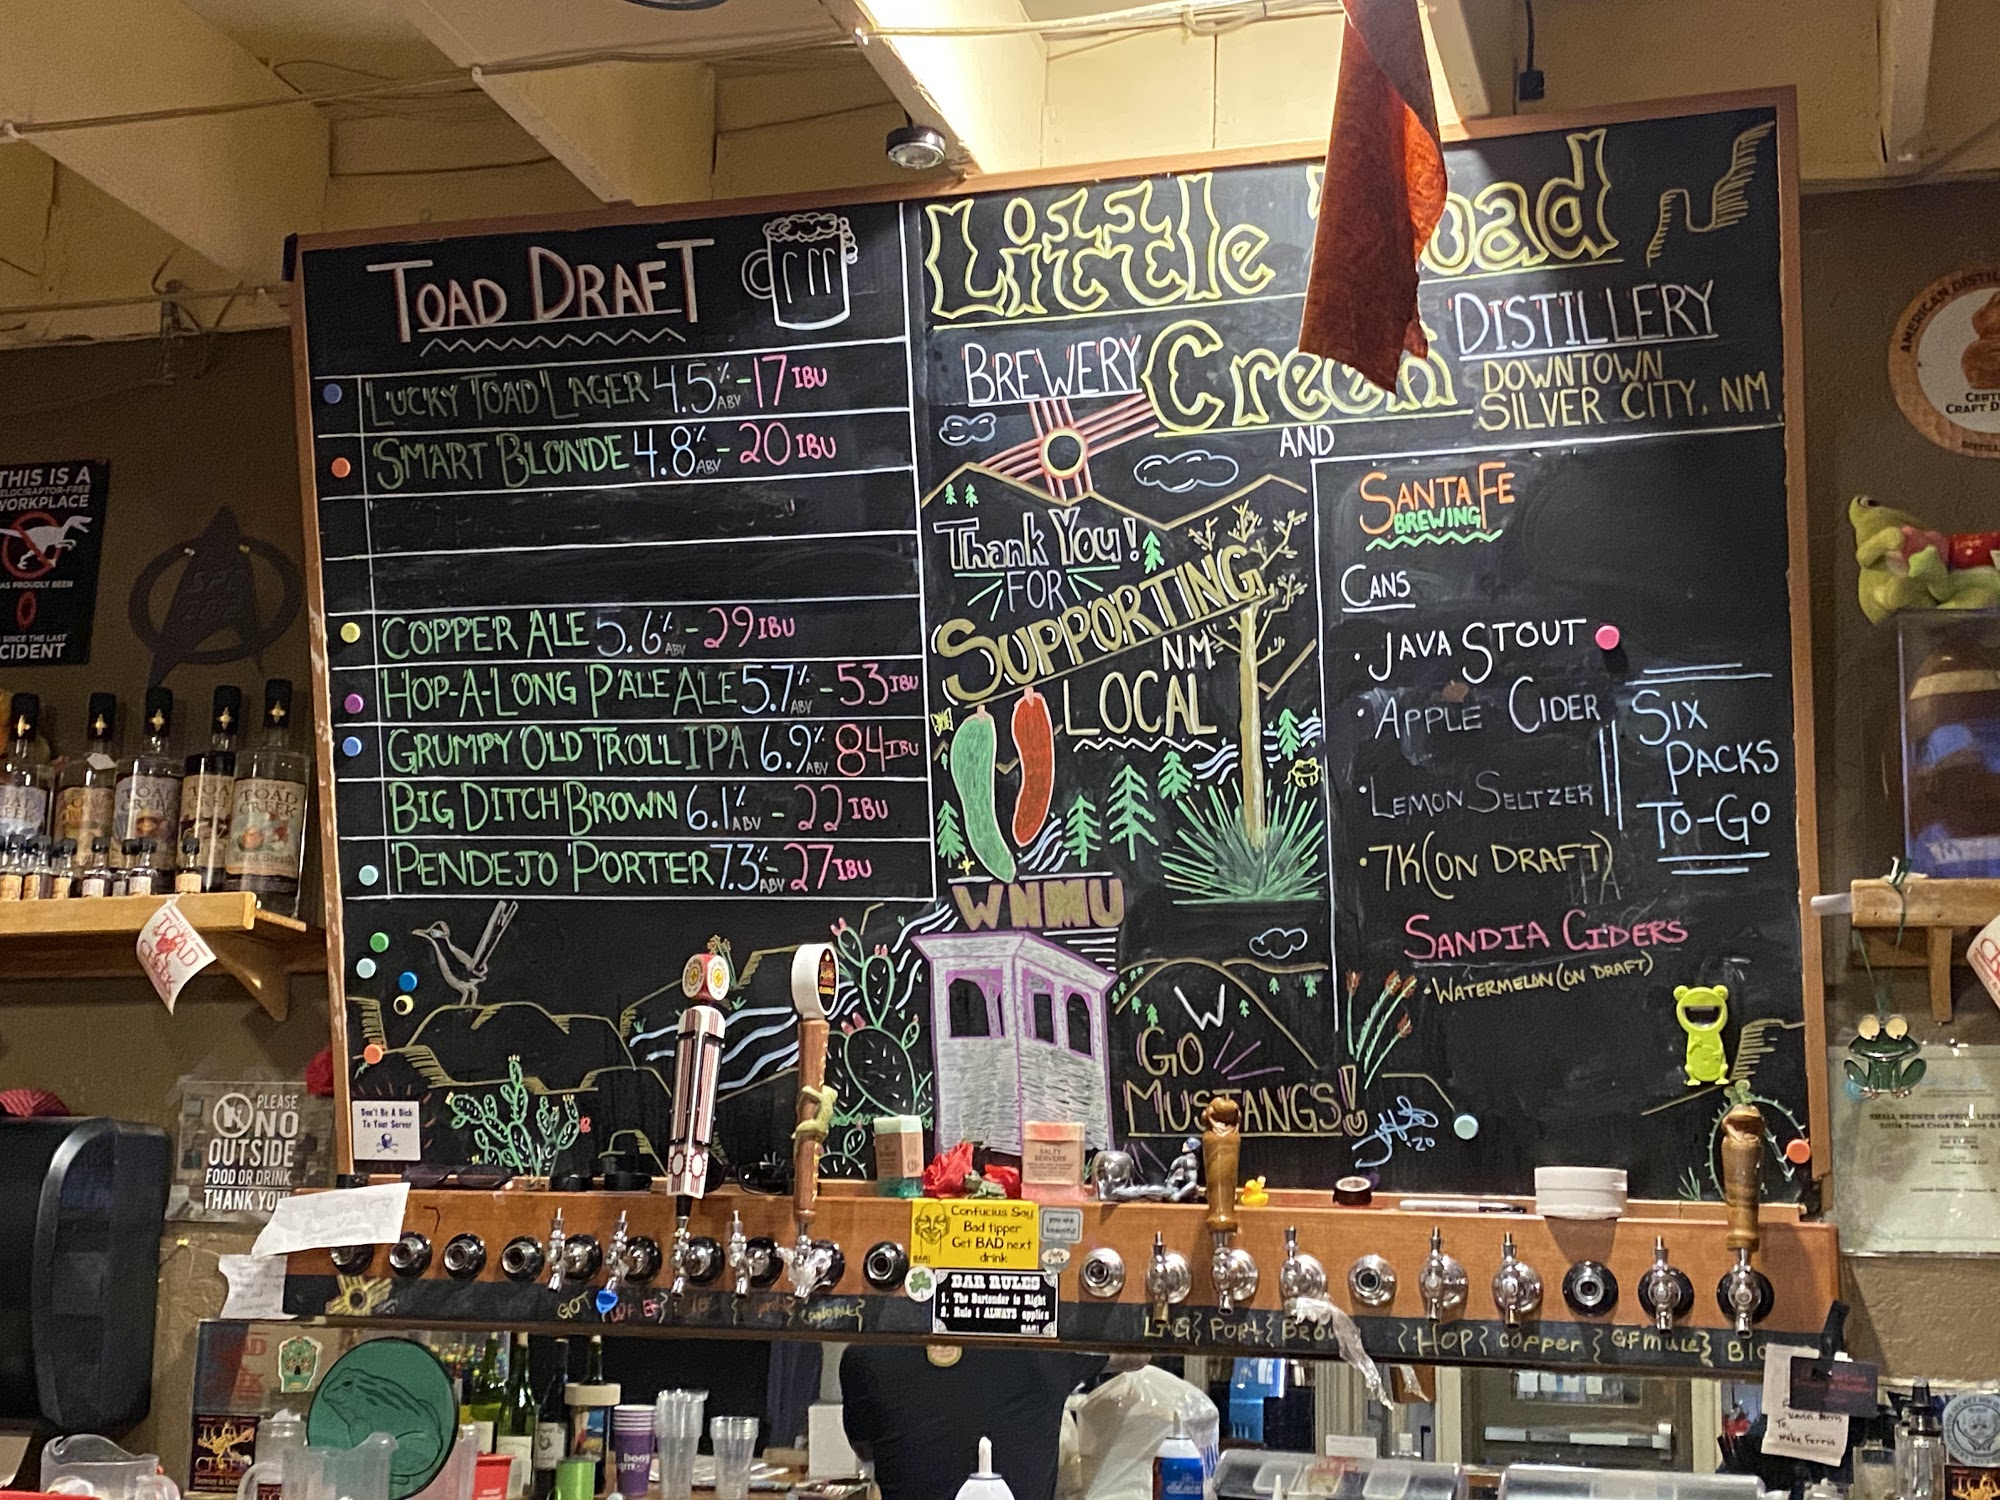 TOAD DRAFT
LUCKY TOAD LAGER 4.5% ABV - 17 IBU
SMART BLONDE 4.8% ABV - 20 IBU
COPPER ALE 5.6% ABV - 29 IBU
HOP-A-LONG PALE ALE 5.7% ABV - 53 IBU
GRUMPY OLD TROLL IPA 6.9% ABV 84 IBU
BIG DITCH BROWN 6.1% ABV - 22 IBU
PENDEJO PORTER 7.3% ABV - 27 IBU
Little
oad
BREWERY
Creek
DISTILLERY
DOWNTOWN
SILVER CITY, NM
AND
Thank You!
FOR
SUPPORTING
N.M.
LOCAL
WNMU
W
GO
MUSTANGS!
20
SANTA FE
BREWING
CANS
· JAVA STOUT
· APPLE CIDER
· LEMON SELTZER
· 7K (ON DRAFT)
SIX
PACKS
TO-GO
SANDIA CIDERS
· WATERMELON (ON DRAFT)
THIS IS A
WORKPLACE
AS PROUDLY BEEN
SINCE THE LAST
CIDENT
Don't Be A Dick
To Your Server
PLEASE
NO
OUTSIDE
FOOD OR DRINK
THANK YOU
TOAD
CREEK
SALTY
SERVERS
Confucius Say
Bad tipper
Get BAD next
drink
you are
beautiful
BAR RULES
1. The Bartender is Right
2. Rule 1 ALWAYS applies
PORT
BRO
{HOP}
COPPER}
GFMULE}
AMERICAN DISTIL
CERTI
CRAFT D
SMALL BREWER OFFSITE LICEN
Little Toad Creek Brewery &
To,
Make Ferris